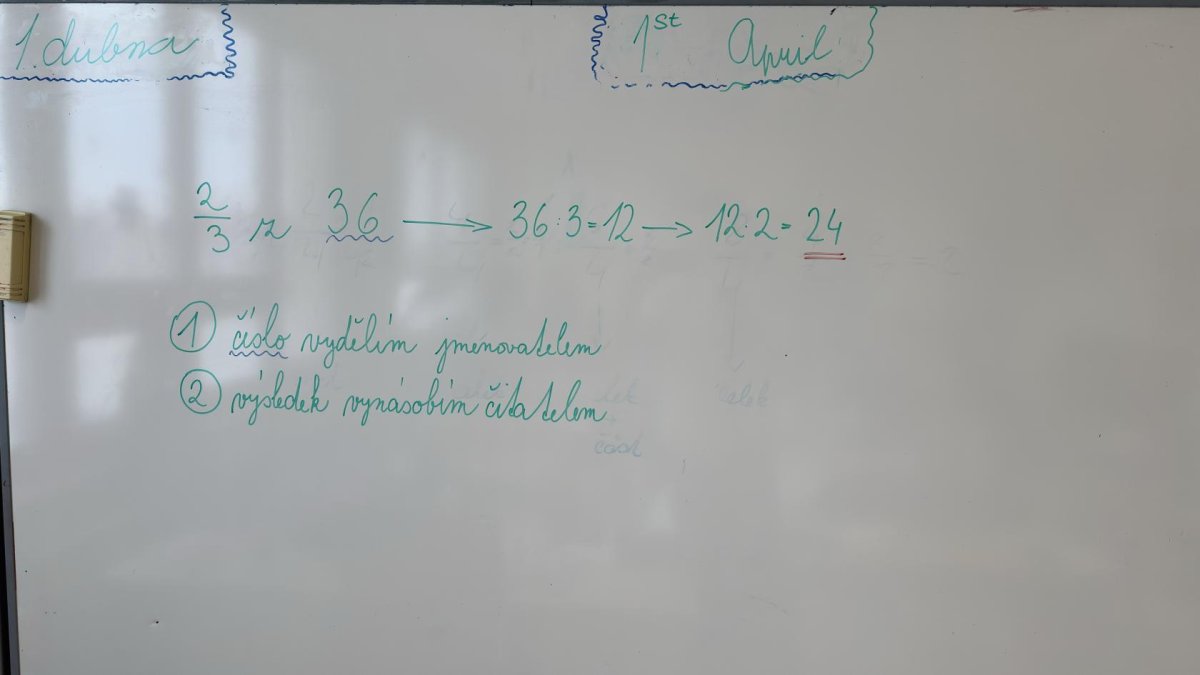 1. dubna
1st April
2/3 z 36 → 36:3=12 → 12·2= 24
① číslo vydělím jmenovatelem
② výsledek vynásobím čitatelem
celek
část